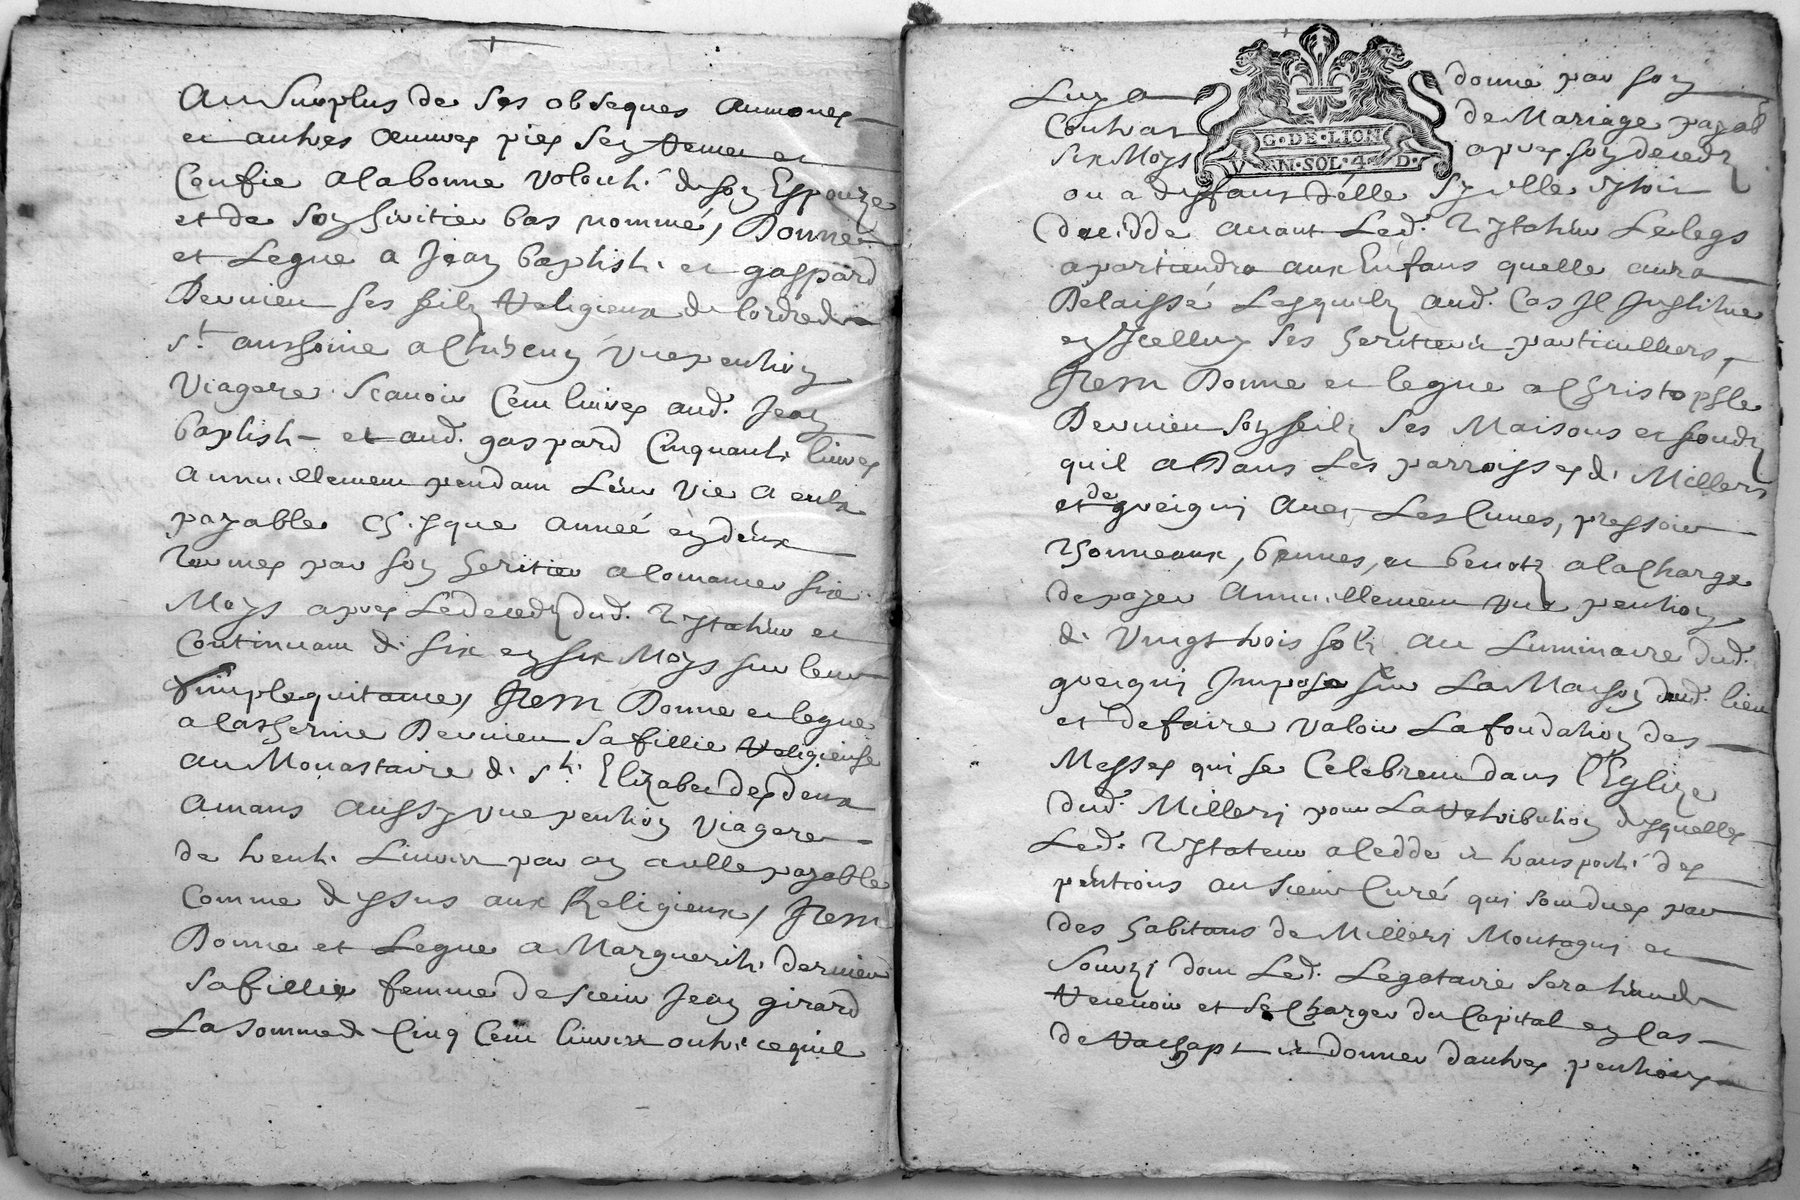 Au Surplus de Ses obseques aumones
et autres œuvres pies Sen Remet et
Confie a la bonne volonté de son Espouze
et de Son heritier bas nommé, Donne
et Legue a Jean baptiste et gaspard
Dervieu ses filz Religieux de lordre de
st. anthoine a chascun une pention
Viagere Scavoir Cent livres aud. Jean
baptiste et aud. gaspard Cinquante livres
annuellement pendant Leur vie a eulx
payable chasque année en deux
termes par son heritier a comancer six
Moys apres Le deceds dud. Testateur et
Continuant de six en six Moys sur leur
simple quitance, Item Donne et legue
a Catherine Dervieu Sa fillie Religieuse
au Monastaire de ste. Elizabet des deux
amans aussy une pention viagere
de trente Livres par an a elle payable
Comme dessus aux Religieux, Item
Donne et Legue a Marguerite dervieu
Sa fillie femme de sieur Jean girard
La somme de Cinq Cent livres outre ce quil
Luy a donné par son
Contrat de Mariage payab
six Moys apres son deceds
G·DE·LION
V AN·SOL·4·D·
ou a deffaut d'elle Sy elle estoit
decedde avant Led. Testateur Le legs
apartiendra aux Enfans quelle aura
Delaissé Lesquelz aud. Cas Il Institue
en Icelluy ses heritiers particulliers,
Item Donne et legue a Christophle
Dervieu son filz ses Maisons et fondz
quil a Dans Les parroisses de Millery
et de greigny avec Les Cuves, pressoir
Thonneaux, bennes, et benotz a la Charge
de payer annuellement une pention
de vingt trois solz au Luminaire dud.
greigny Imposé sur La Maison dud. lieu
et de faire valoir La fondation des
Messes qui se Celebrent dans l'Eglize
dud. Millery pour La Retribution desquelles
Led. Testateur a cedde et transporté des
pentions au sieur Curé qui sont dues par
des habitans de Millery Montagny et
Sourzy dont Led. Legataire sera tenu de
Recevoir et se Charger du Capital en Cas
de Rachapt et donner dautres pentions